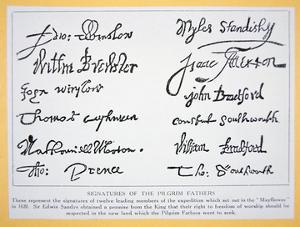 Edw: Winslow Myles Standish
Willm Brewster Isaac Allerton
John winslow john Bradford
Thomas Cushman Constant Southworth
Nathaniell Morton William Bradford
Tho: Prence Tho: Southworth
SIGNATURES OF THE PILGRIM FATHERS
These represent the signatures of twelve leading members of the expedition which set out in the "Mayflower"
in 1620. Sir Edwin Sandys obtained a promise from the King that their right to freedom of worship should be
respected in the new land which the Pilgrim Fathers went to seek.